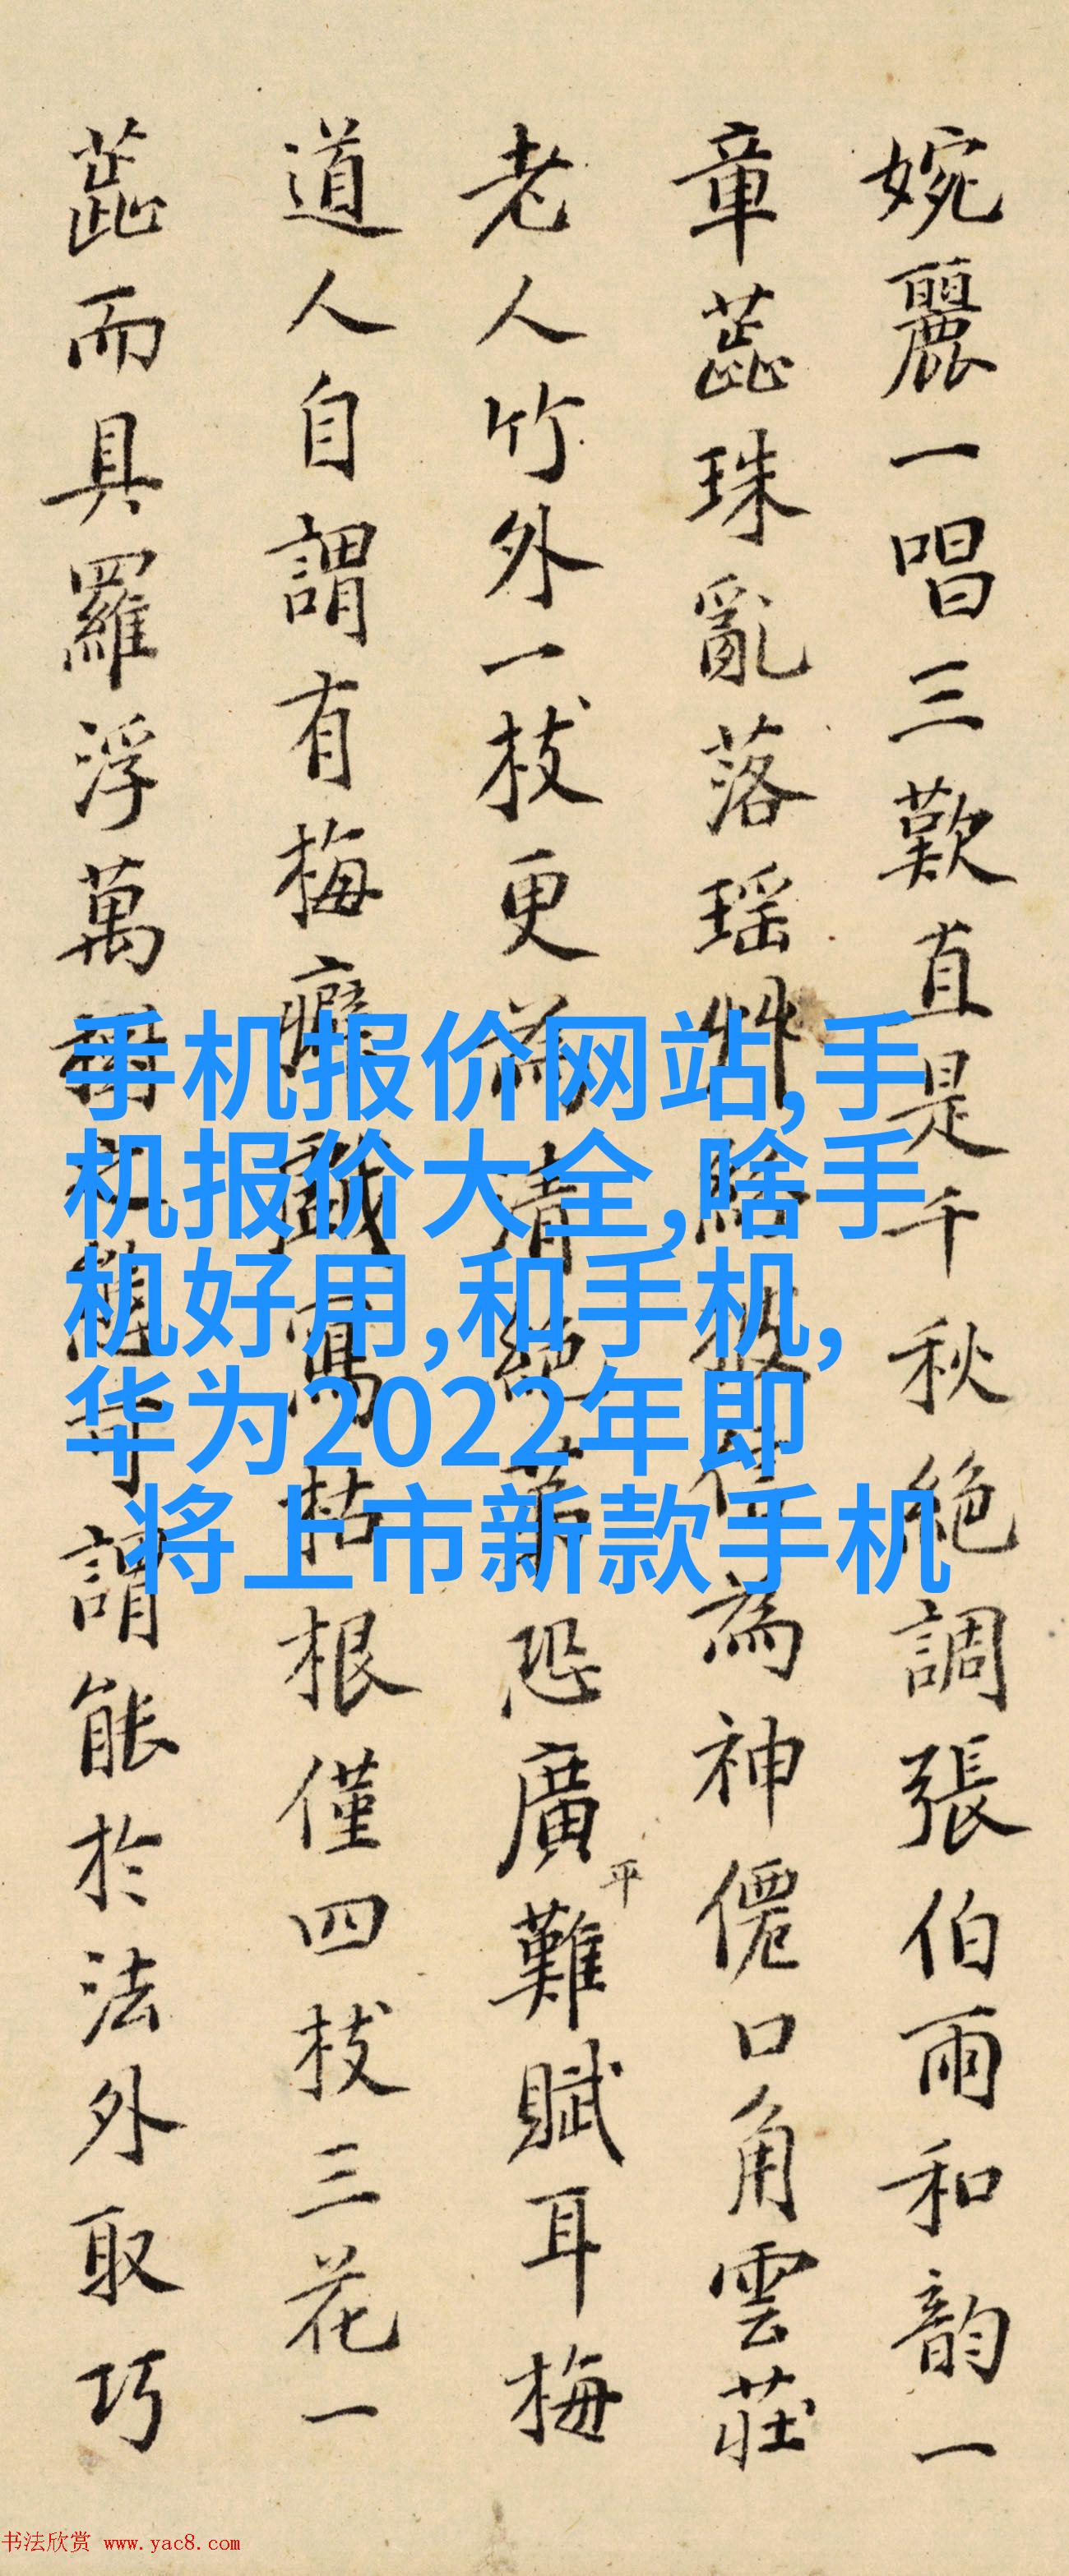 婉麗一唱三歎直是千秋絕調張伯雨和韵一
章蕋珠亂落瑶艸為神僊口角雲莊
老人竹外一枝更為清絕恐廣平難賦耳梅
道人自謂有梅癖戲寫枯根僅四枝三花一
蕋而具羅浮萬謂能於法外取巧
手机报价网站,手
机报价大全,啥手
机好用,和手机,
华为2022年即
将上市新款手机
书法欣赏 www.yac8.com